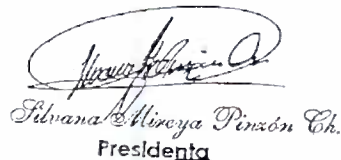 Silvana Mireya Pinzón Ch.
Presidenta